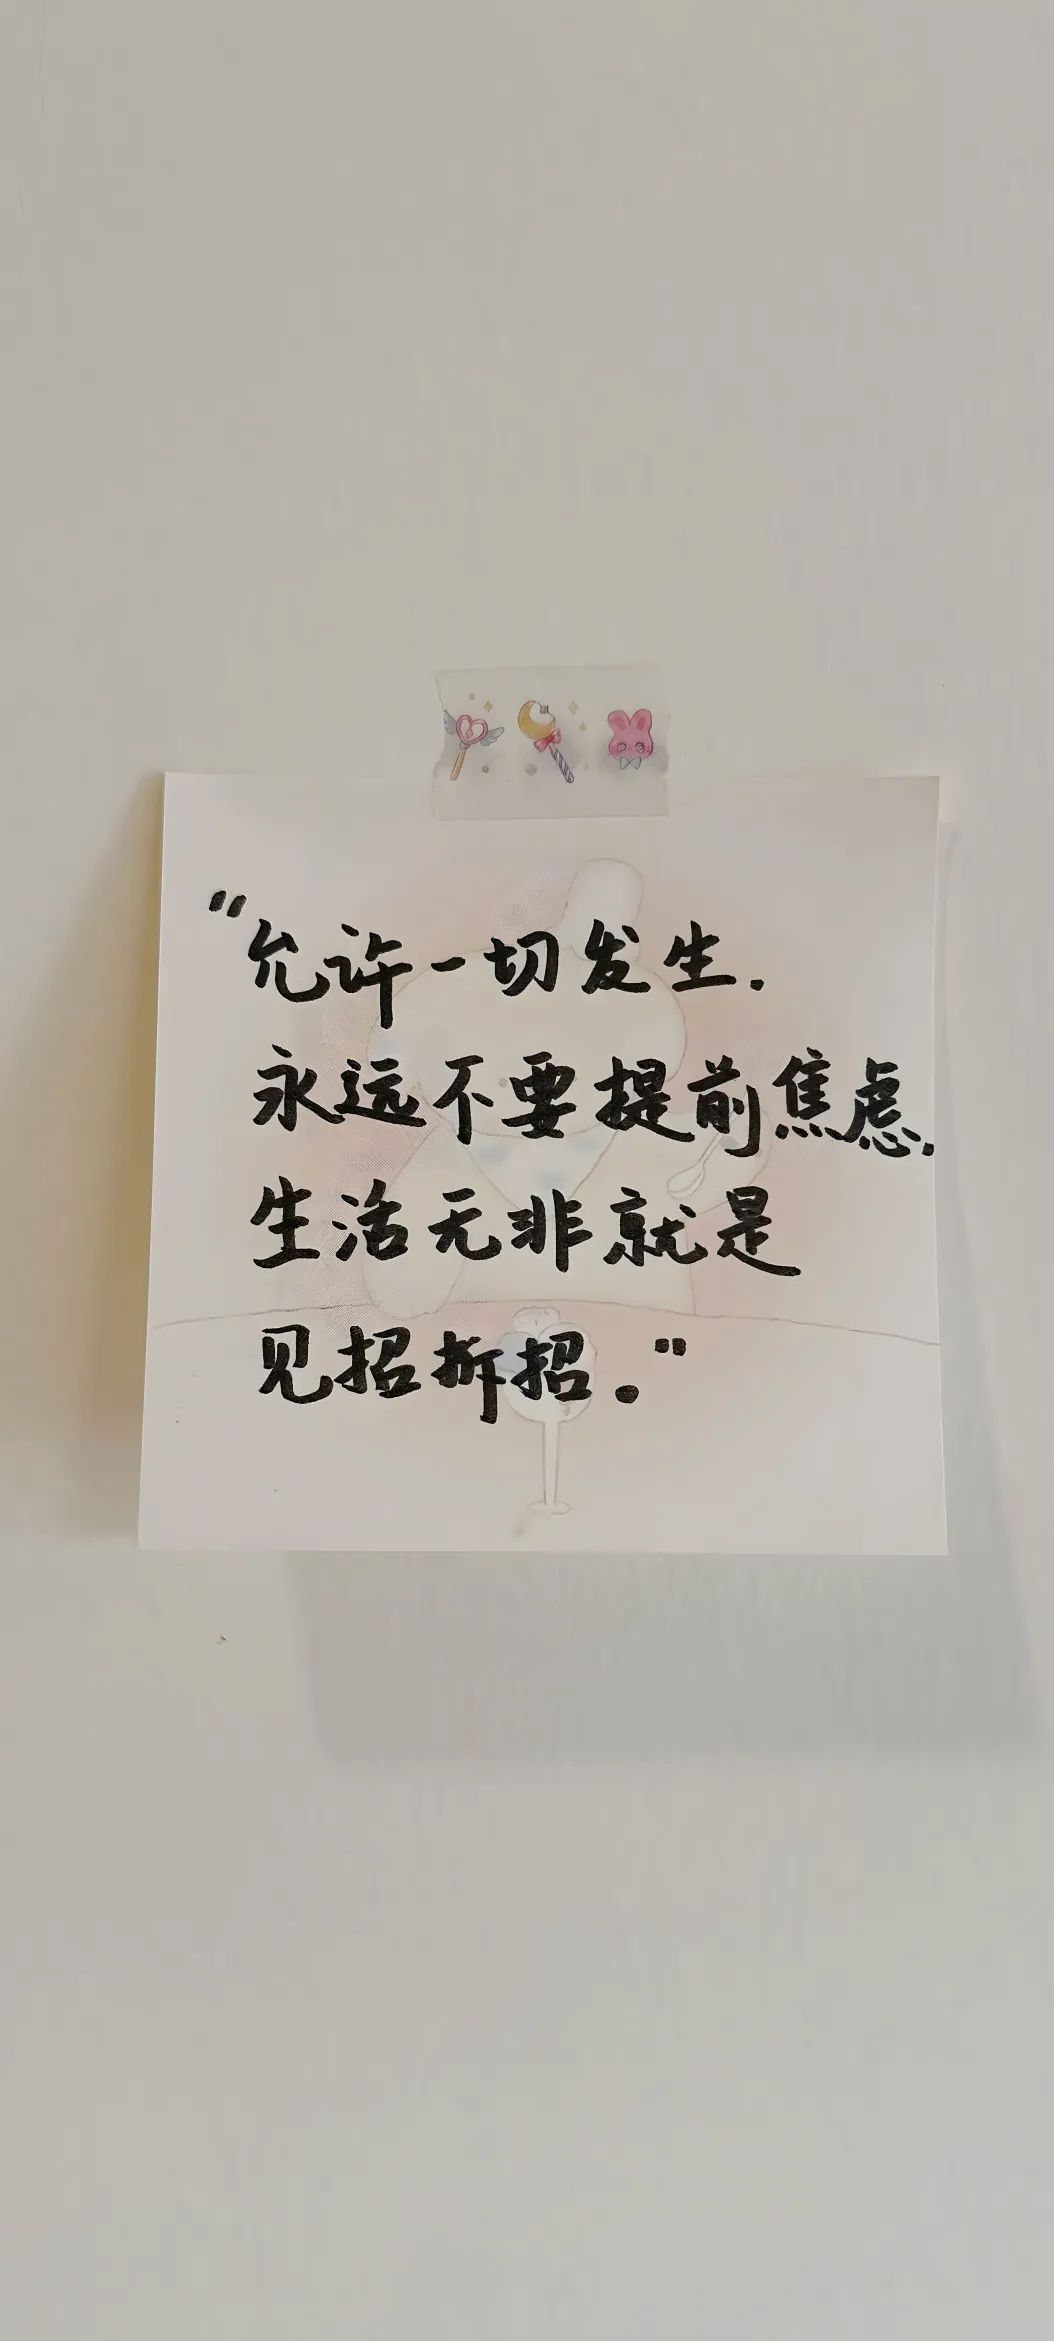 "允许一切发生.
永远不要提前焦虑.
生活无非就是
见招拆招。"